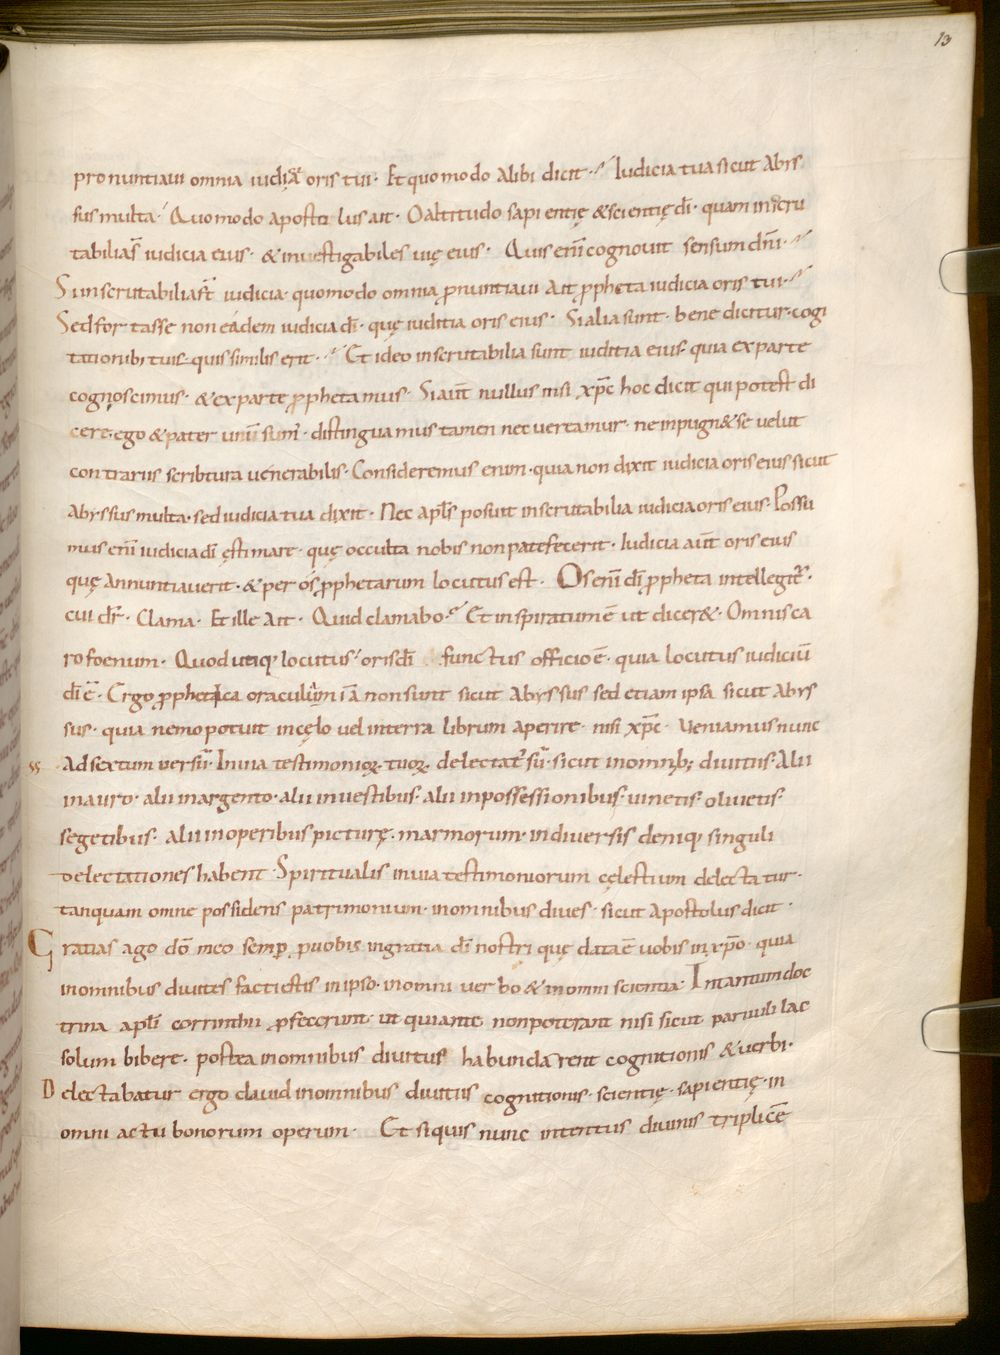 13
pronuntiavi omnia iudicia oris tui · Et quomodo alibi dicit · Iudicia tua sicut abys
sus multa · Quomodo apostolus ait · O altitudo sapientię & scientię dī · quam inscru
tabilia s̄ iudicia eius · & investigabiles vię eius · Quis enī cognovit sensum dn̄i ·
Si inscrutabilia st̄ iudicia · quomodo omnia ꝓnuntiavi ait ꝓpheta iudicia oris tui ·
Sed fortasse non eadem iudicia dī · quę iuditia oris eius · Si alia sunt · bene dicitur · cogi
tationibus tuis quis similis erit · Et ideo inscrutabilia sunt iuditia eius · quia ex parte
cognoscimus · & ex parte ꝓphetamus · Si aūt nullus nisi xp̄c hoc dicit qui potest di
cere · ego & pater unū sum̄ · distinguamus tamen nec vereamur · ne inpugn& se velut
contrariis scribtura venerabilis · Consideremus enim · quia non dixit iudicia oris eius sicut
abyssus multa · sed iudicia tua dixit · Nec apl̄s posuit inscrutabilia iudicia oris eius · Possu
mus enī iudicia dī ęstimare · quę occulta nobis non patefecerit · Iudicia aūt oris eius
quę annuntiaverit · & per os ꝓphetarum locutus est · Os enī dī ꝓpheta intellegit᷒ ·
cui dr̄ · Clama · Et ille ait · Quid clamabo · Et inspiratum ē ut dicer& · Omnis ca
ro foenum · Quod utiq; locutus oris dī functus officio ē · quia locutus iudiciū
dī ē · Ergo ꝓphetica oracula iā non sunt sicut abyssus sed etiam ipsa sicut abys
sus · quia nemo potuit in cęlo vel in terra librum aperire · nisi xp̄c · Veniamus nunc
ss · ad sextum versū · In via testimonioꝝ tuoꝝ delectat᷒ sū · sicut in omnib; divitiis · Alii
in auro · alii in argento · alii in vestibus · alii in possessionibus · vinetis · olivetis ·
segetibus · alii in operibus picturę · marmorum · in diversis deniq; singuli
delectationes habent · Spiritualis in via testimoniorum cęlestium delectatur ·
tanquam omne possidens patrimonium · in omnibus dives · sicut apostolus dicit ·
Gratias ago dō meo semꝑ ꝓ vobis in gratia dī nostri quę data ē vobis in xp̄o · quia
in omnibus divites facti estis in ipso · in omni verbo & in omni scientia · In tantum doc
trina apl̄i corinthii ꝓfecerunt · ut qui ante non poterant nisi sicut parvuli lac
solum bibere · postea in omnibus divitiis habundarent cognitionis & verbi ·
Delectabatur ergo david in omnibus divitiis cognitionis · scientię · sapientię · in
omni actu bonorum operum · Et si quis nunc intentus divinis triplicē